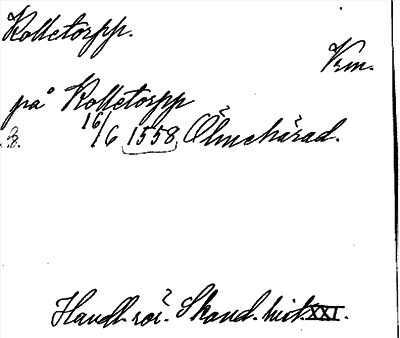 Kolletorpp.
Vrm.
på Kolletorpp
16/6 1558. Ölmehärad.
Handl. rör. Skand. hist. XXI.